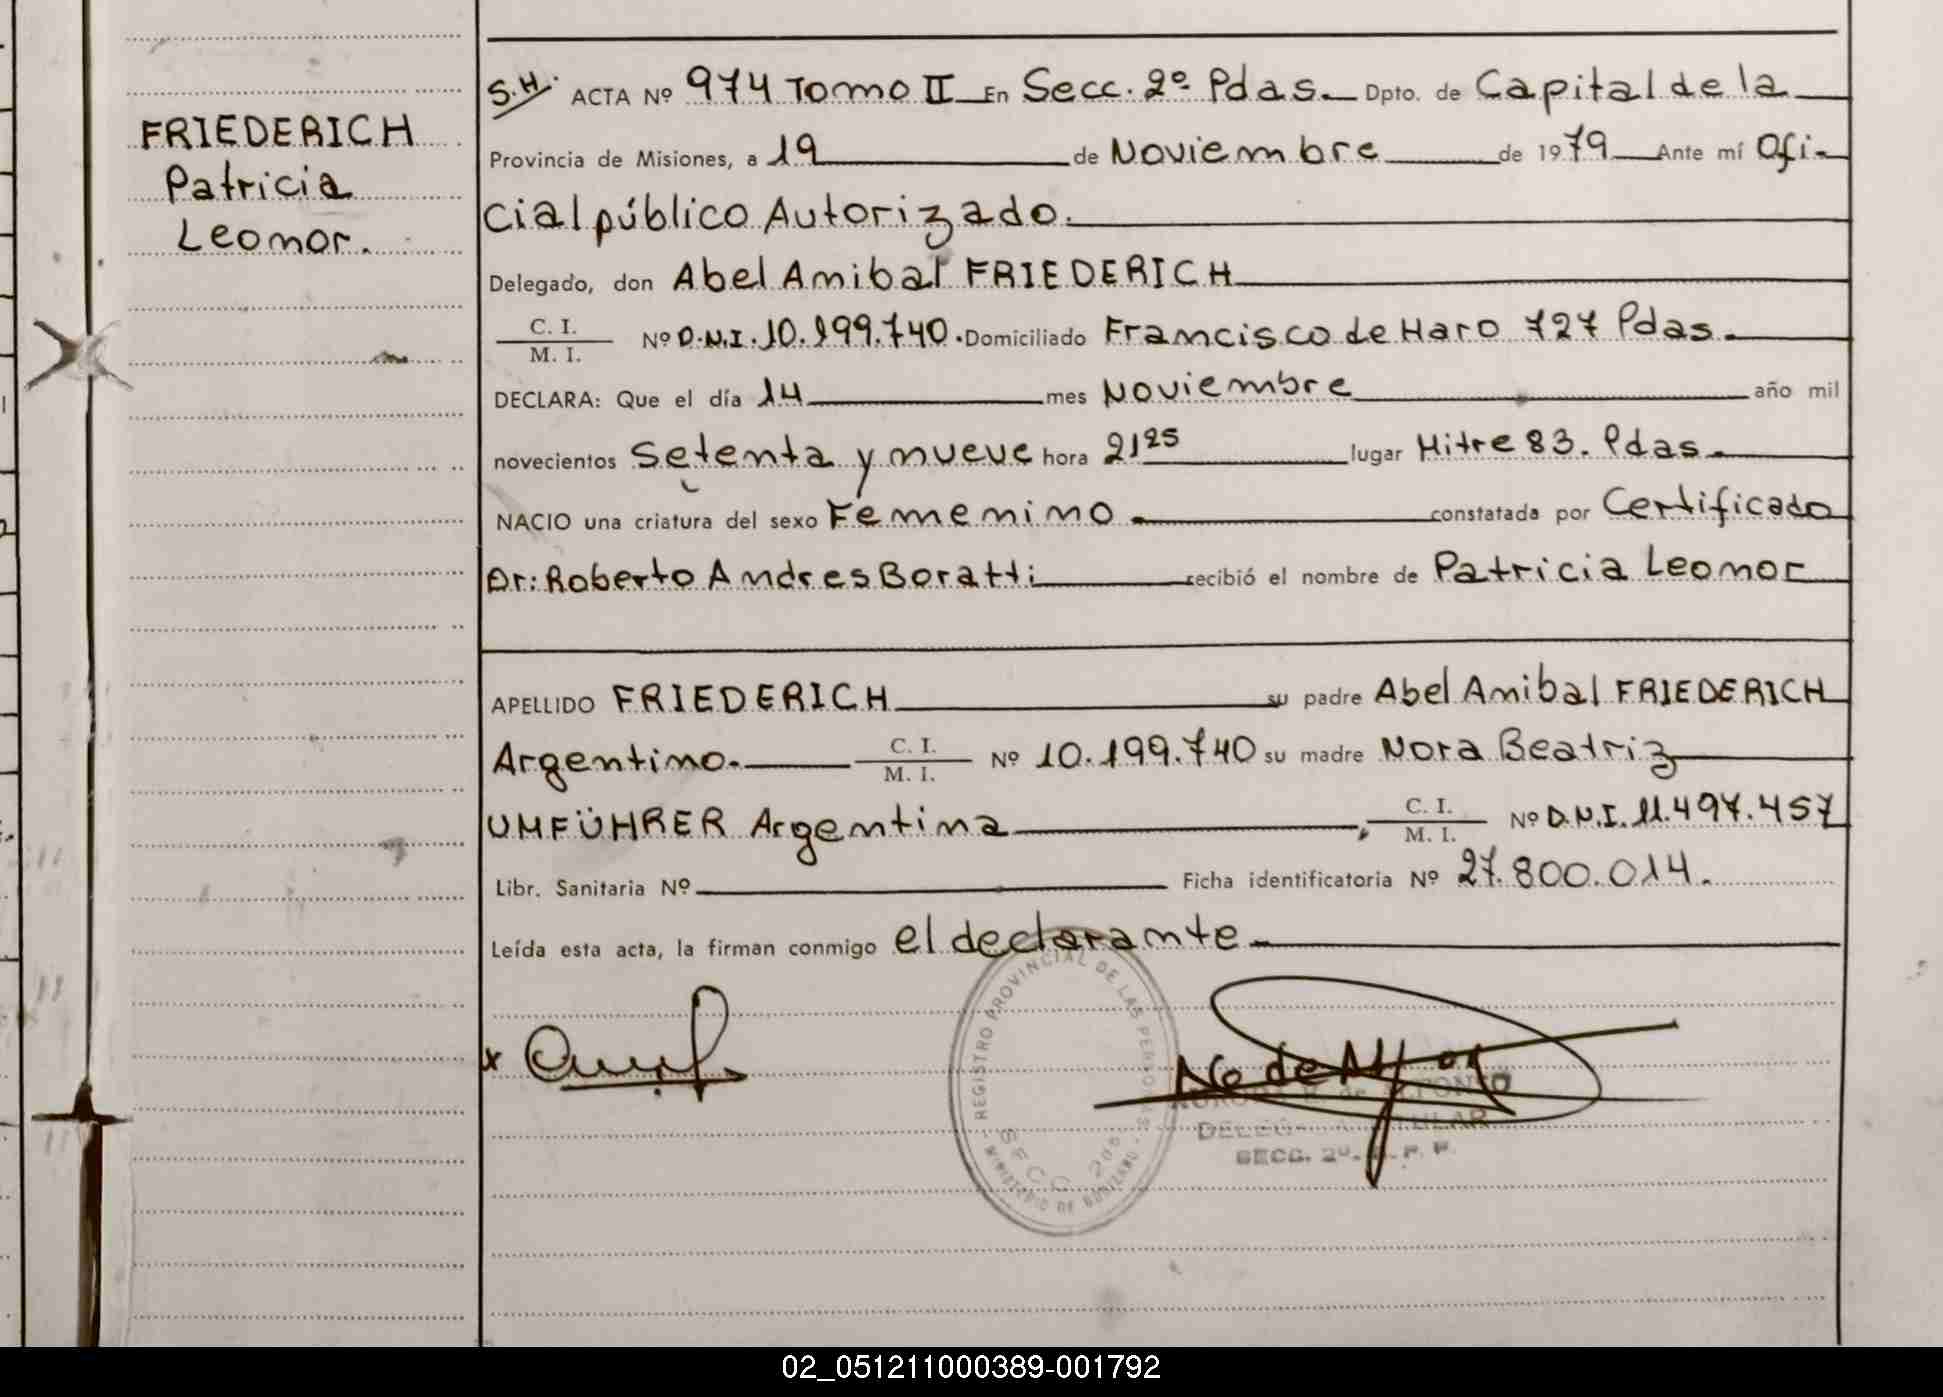 FRIEDERICH
Patricia
Leonor.
S.H. ACTA Nº 974 Tomo II En Secc. 2º Pdas. Dpto. de Capital de la
Provincia de Misiones, a 19 de Noviembre de 1979 Ante mí Ofi-
cial público Autorizado.
Delegado, don Abel Anibal FRIEDERICH
C. I.
M. I.
Nº D.N.I. 10.199.740. Domiciliado Francisco de Haro 727 Pdas.
DECLARA: Que el día 14 mes Noviembre año mil
novecientos Setenta y nueve hora 21 25 lugar Mitre 83. Pdas.
NACIO una criatura del sexo Femenino constatada por Certificado
Dr: Roberto Andres Boratti recibió el nombre de Patricia Leonor
APELLIDO FRIEDERICH su padre Abel Anibal FRIEDERICH
Argentino. C. I. M. I. Nº 10.199.740 su madre Nora Beatriz
UMFÜHRER Argentina, C. I. M. I. Nº D.N.I. 11.497.457
Libr. Sanitaria Nº Ficha identificatoria Nº 27.800.014.
Leída esta acta, la firman conmigo el declarante
REGISTRO PROVINCIAL DE LAS PERSONAS
SECC. 2da
MINISTERIO DE GOBIERNO
SECC. 2º.
02_051211000389-001792